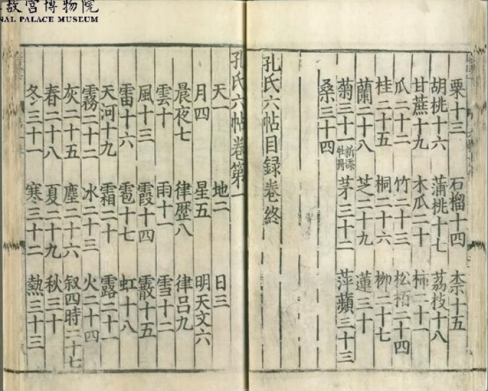 故宮博物院
NAL PALACE MUSEUM
栗十三 石榴十四 柰十五
胡桃十六 蒲桃十七 荔枝十八
甘蔗十九 木瓜二十 柿二十一
瓜二十二 竹二十三 松栢二十四
桂二十五 桐二十六 柳二十七
蘭二十八 芝二十九 蓮三十
菊三十一 茅三十二 萍蘋三十三
桑三十四
孔氏六帖目録卷終
孔氏六帖卷第一
天一 地二 日三
月四 星五 明天文六
晨夜七 律歷八 律呂九
雲十 雨十一 雪十二
風十三 霞十四 霰十五
雷十六 雹十七 虹十八
天河十九 霜二十 露二十一
霧二十二 氷二十三 火二十四
灰二十五 塵二十六 叙四時二十七
春二十八 夏二十九 秋三十
冬三十一 寒三十二 熱三十三